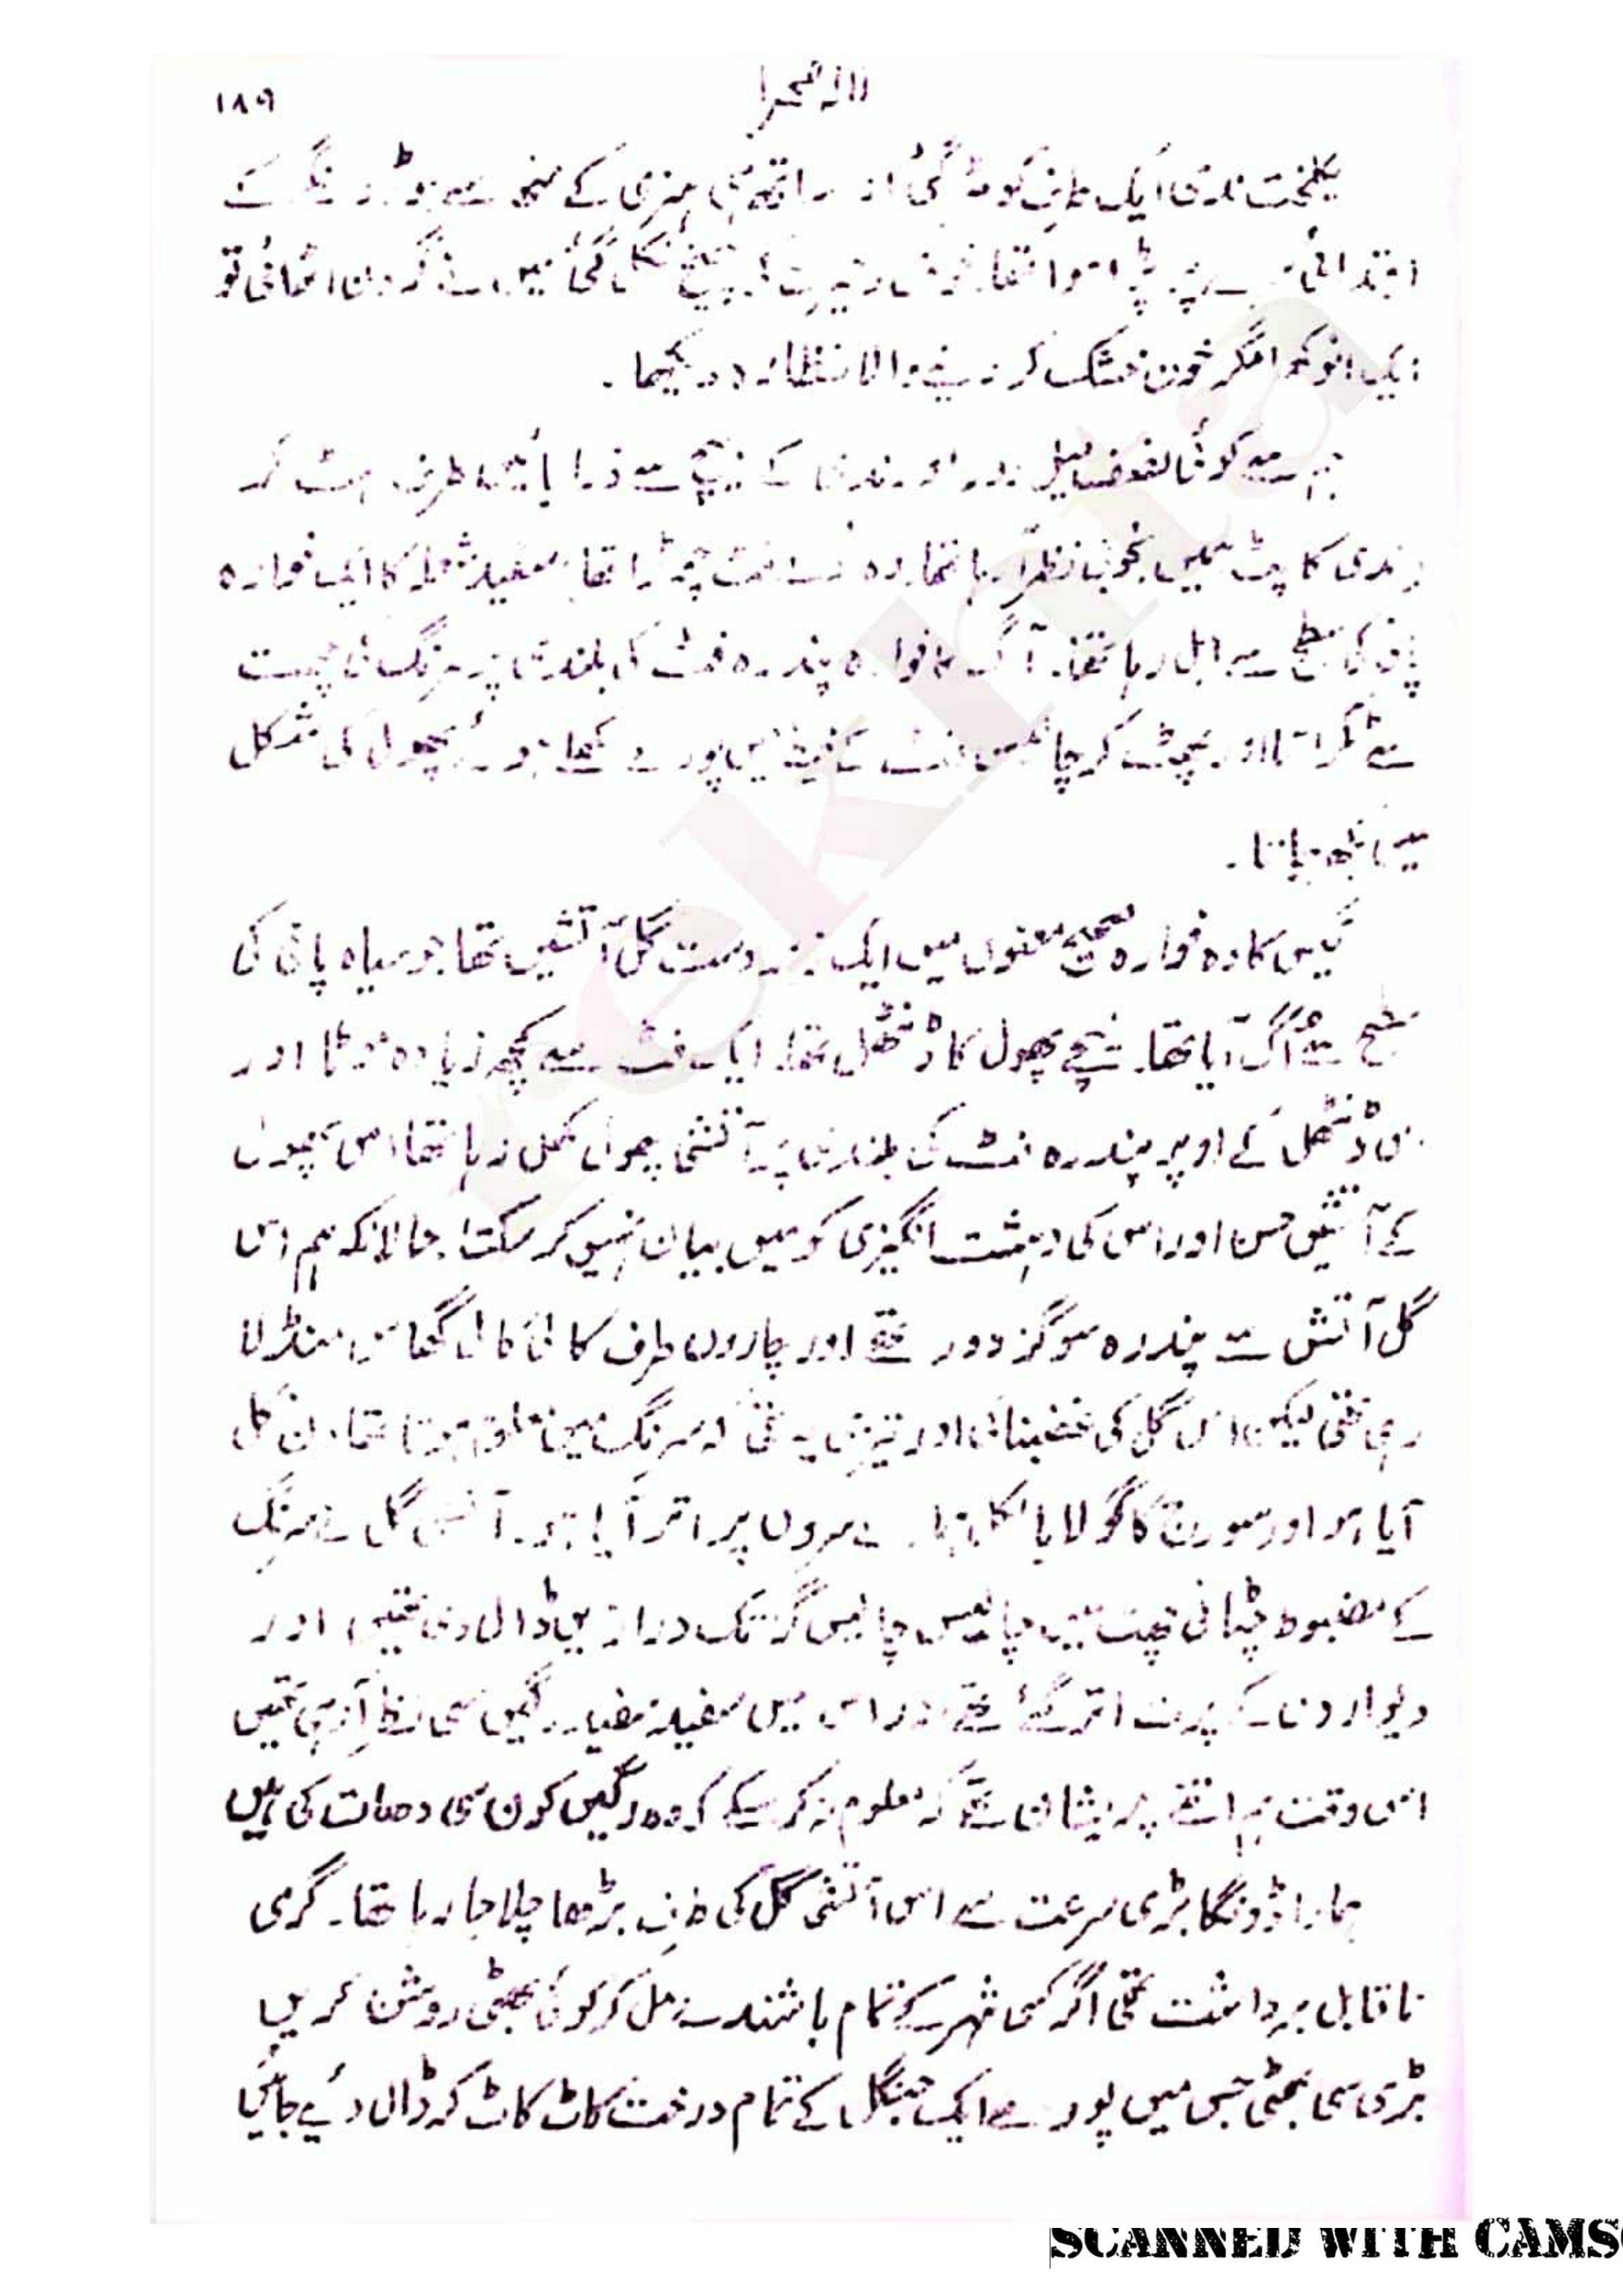 لالہ صحرا ۱۸۹
یکلخت ندی ایک طرف کو مڑ گئی اور ساتھ ہی ہنری کے منھ سے جو
ابتدائی پر پڑا ہوا تھا چیخ نکل گئی میں نے گردن اٹھائی تو
ایک انوکھا مگر خون خشک کر دینے والا نظارہ دیکھا ۔
ہم سے کوئی نصف میل دور اور ندی کے بیچ سے ذرا بائیں طرف ہٹ کر
ندی کا پٹ ہمیں بخوبی نظر آ رہا تھا وہ فٹ چوڑا تھا سفید شعلہ کا ایک فوارہ
پانی کی سطح سے ابل رہا تھا۔ آگ کا فوارہ پندرہ فٹ کی بلندی پر سرنگ کی چھت
سے ٹکراتا اور پھٹ کر چالیس فٹ کے میں پورے کھلے ہوئے پھول کی شکل
میں
گیس کا وہ فوارہ صحیح معنوں میں ایک زبردست گل آتشیں تھا جو سیاہ پانی کی
سطح سے اُگ آیا تھا۔ نیچے پھول کا ڈنٹھل تھا۔ ایک فٹ سے کچھ زیادہ موٹا اور
اس ڈنٹھل کے اوپر پندرہ فٹ کی بلندی پر آتشی پھول کھل رہا تھا اس پھول
کے آتشیں حسن اور اس کی دہشت انگیزی کو میں بیان نہیں کر سکتا۔ حالانکہ ہم اس
گل آتش سے پندرہ سو گز دور تھے اور چاروں طرف کالی کالی گھاس منڈلا
رہی تھی لیکن اس گل کی غضبناکی اور تیزی یہ تھی کہ سرنگ میں معلوم ہوتا تھا دن نکل
آیا ہو اور سورج کا گولا بالکل ہمارے سروں پر اتر آیا ہو۔ آتشی گل نے سرنگ
کے مضبوط چٹانی چھت میں چالیس چالیس گز تک دراڑیں ڈال دی تھیں اور
دیواروں کے پرت اتر گئے تھے اور اس میں سفید سفید رگیں سی نظر آ رہی تھیں
اس وقت ہم اتنے پریشان تھے کہ معلوم نہ کر سکے کہ وہ رگیں کون سی دھات کی ہیں
ہمارا ڈونگا بڑی سرعت سے اس آتشی گل کی طرف بڑھا چلا جا رہا تھا۔ گرمی
ناقابل برداشت تھی اگر کسی شہر کے تمام باشندے مل کر کوئی بھٹی روشن کریں
بڑی سی بھٹی جس میں پورے ایک جنگل کے تمام درخت کاٹ کاٹ کر ڈال دئیے جائیں
SCANNED WITH CAMS